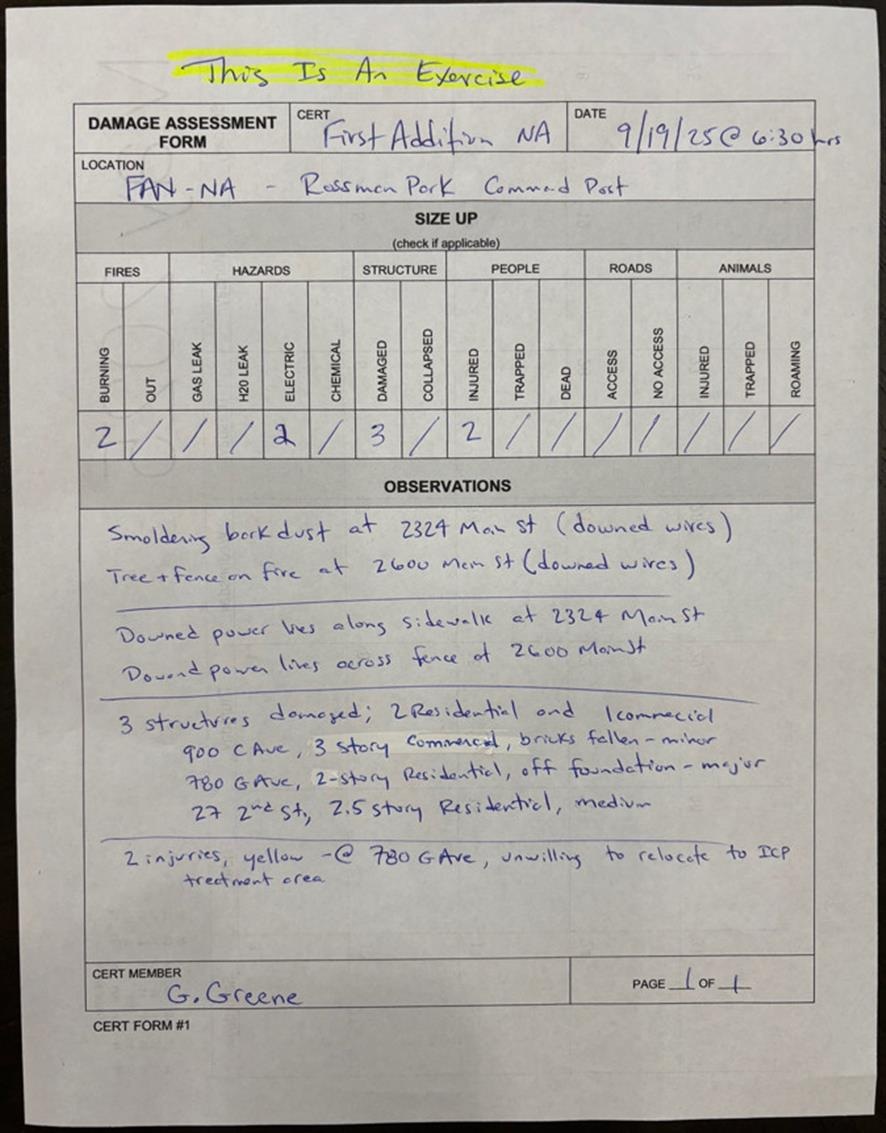 This Is An Exercise
DAMAGE ASSESSMENT FORM
CERT First Addition NA
DATE 9/19/25 @ 6:30 hrs
LOCATION
FAN-NA - Rossman Park Command Post
SIZE UP
(check if applicable)
FIRES HAZARDS STRUCTURE PEOPLE ROADS ANIMALS
BURNING OUT GAS LEAK H20 LEAK ELECTRIC CHEMICAL DAMAGED COLLAPSED INJURED TRAPPED DEAD ACCESS NO ACCESS INJURED TRAPPED ROAMING
2 / / / 2 / 3 / 2 / / / / / / /
OBSERVATIONS
Smoldering bark dust at 2324 Main St (downed wires)
Tree + fence on fire at 2600 Main St (downed wires)
Downed power lies along sidewalk at 2324 Main St
Downd power lives across fence at 2600 Main St
3 structures damaged; 2 Residential and 1 commecial
900 C Ave, 3 story Commercial, bricks fallen - minor
780 G Ave, 2-story Residential, off foundation - major
27 2nd St, 2.5 story Residential, medium
2 injuries, yellow - @ 780 G Ave, unwilling to relocate to ICP
treatment area
CERT MEMBER
G. Greene
PAGE 1 OF 1
CERT FORM #1